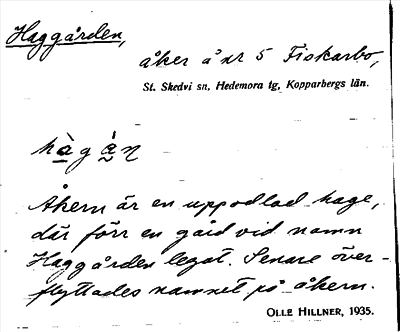 Haggården,
åker å nr 5 Fiskarbo,
St. Skedvi sn, Hedemora tg, Kopparbergs län.
hàgå̀n
Åkern är en uppodlad hage,
där förr en gård vid namn
Haggården legat. Senare över-
flyttades namnet på åkern.
OLLE HILLNER, 1935.